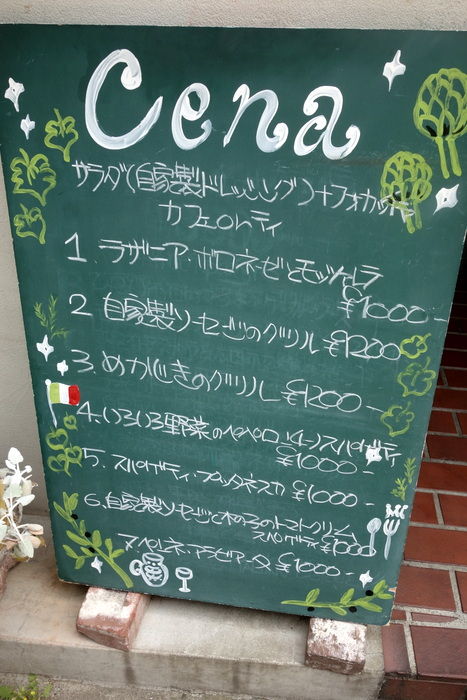 Cena
サラダ(自家製ドレッシング)+フォカッチャ
カフェorティ
1. ラザニア・ボロネーゼとモッツァレラ
¥1000-
2 自家製ソーセージのグリル ¥1200
3. めかじきのグリル ¥1200-
4. いろいろ野菜のペペロンチーノスパゲティ
¥1000-
5. スパゲティ・プッタネスカ ¥1000-
6. 自家製ソーセージときのこのトマトクリーム
スパゲティ ¥1000
¥1000-